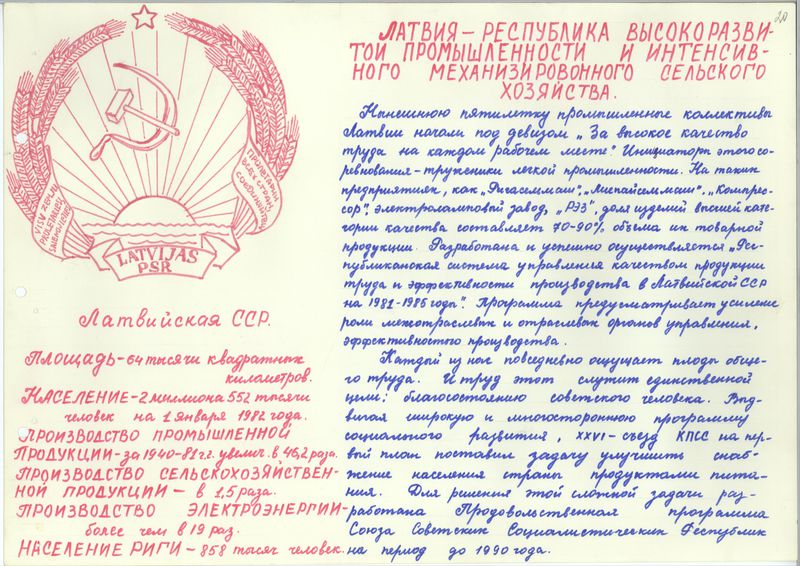 20
VISU ZEMJU
PROLETĀRIEŠI,
SAVIENOJIETIES!
ПРОЛЕТАРИИ
ВСЕХ СТРАН,
СОЕДИНЯЙТЕСЬ!
LATVIJAS
PSR
Латвийская ССР.
Площадь – 64 тысячи квадратных
километров.
Население – 2 миллиона 552 тысячи
человек на 1 января 1982 года.
Производство промышленной
продукции – за 1940-81 г.г. увелич. в 46,2 раза.
Производство сельскохозяйствен-
ной продукции – в 1,5 раза.
Производство электроэнергии –
более чем в 19 раз.
Население Риги – 858 тысяч человек.
Латвия – республика высокоразви-
той промышленности и интенсив-
ного механизировонного сельского
хозяйства.
Нынешнюю пятилетку промышленные коллективы
Латвии начали под девизом „За высокое качество
труда на каждом рабочем месте". Инициаторы этого со-
ревнования – труженики легкой промышленности. На таких
предприятиях, как „Ригасельмаш", „Лиепайсельмаш", „Компрес-
сор", электроламповый завод, „РЭЗ", доля изделий высшей кате-
гории качества составляет 70-90% объема их товарной
продукции. Разработана и успешно осуществляется „Рес-
публиканская система управления качеством продукции
труда и эффективности производства в Латвийской ССР
на 1981-1985 годы". Программа предусматривает усиление
роли межотраслевых и отраслевых органов управления,
эффективного производства.
Каждый из нас повседневно ощущает плоды обще-
го труда. И труд этот служит единственной
цели: благосостоянию советского человека. Выд-
вигая широкую и многостороннюю программу
социального развития, XXVI-съезд КПСС на пер-
вый план поставил задачу улучшить снаб-
жение населения страны продуктами пита-
ния. Для решения этой сложной задачи раз-
работана Продовольственная программа
Союза Советских Социалистических Республик
на период до 1990 года.